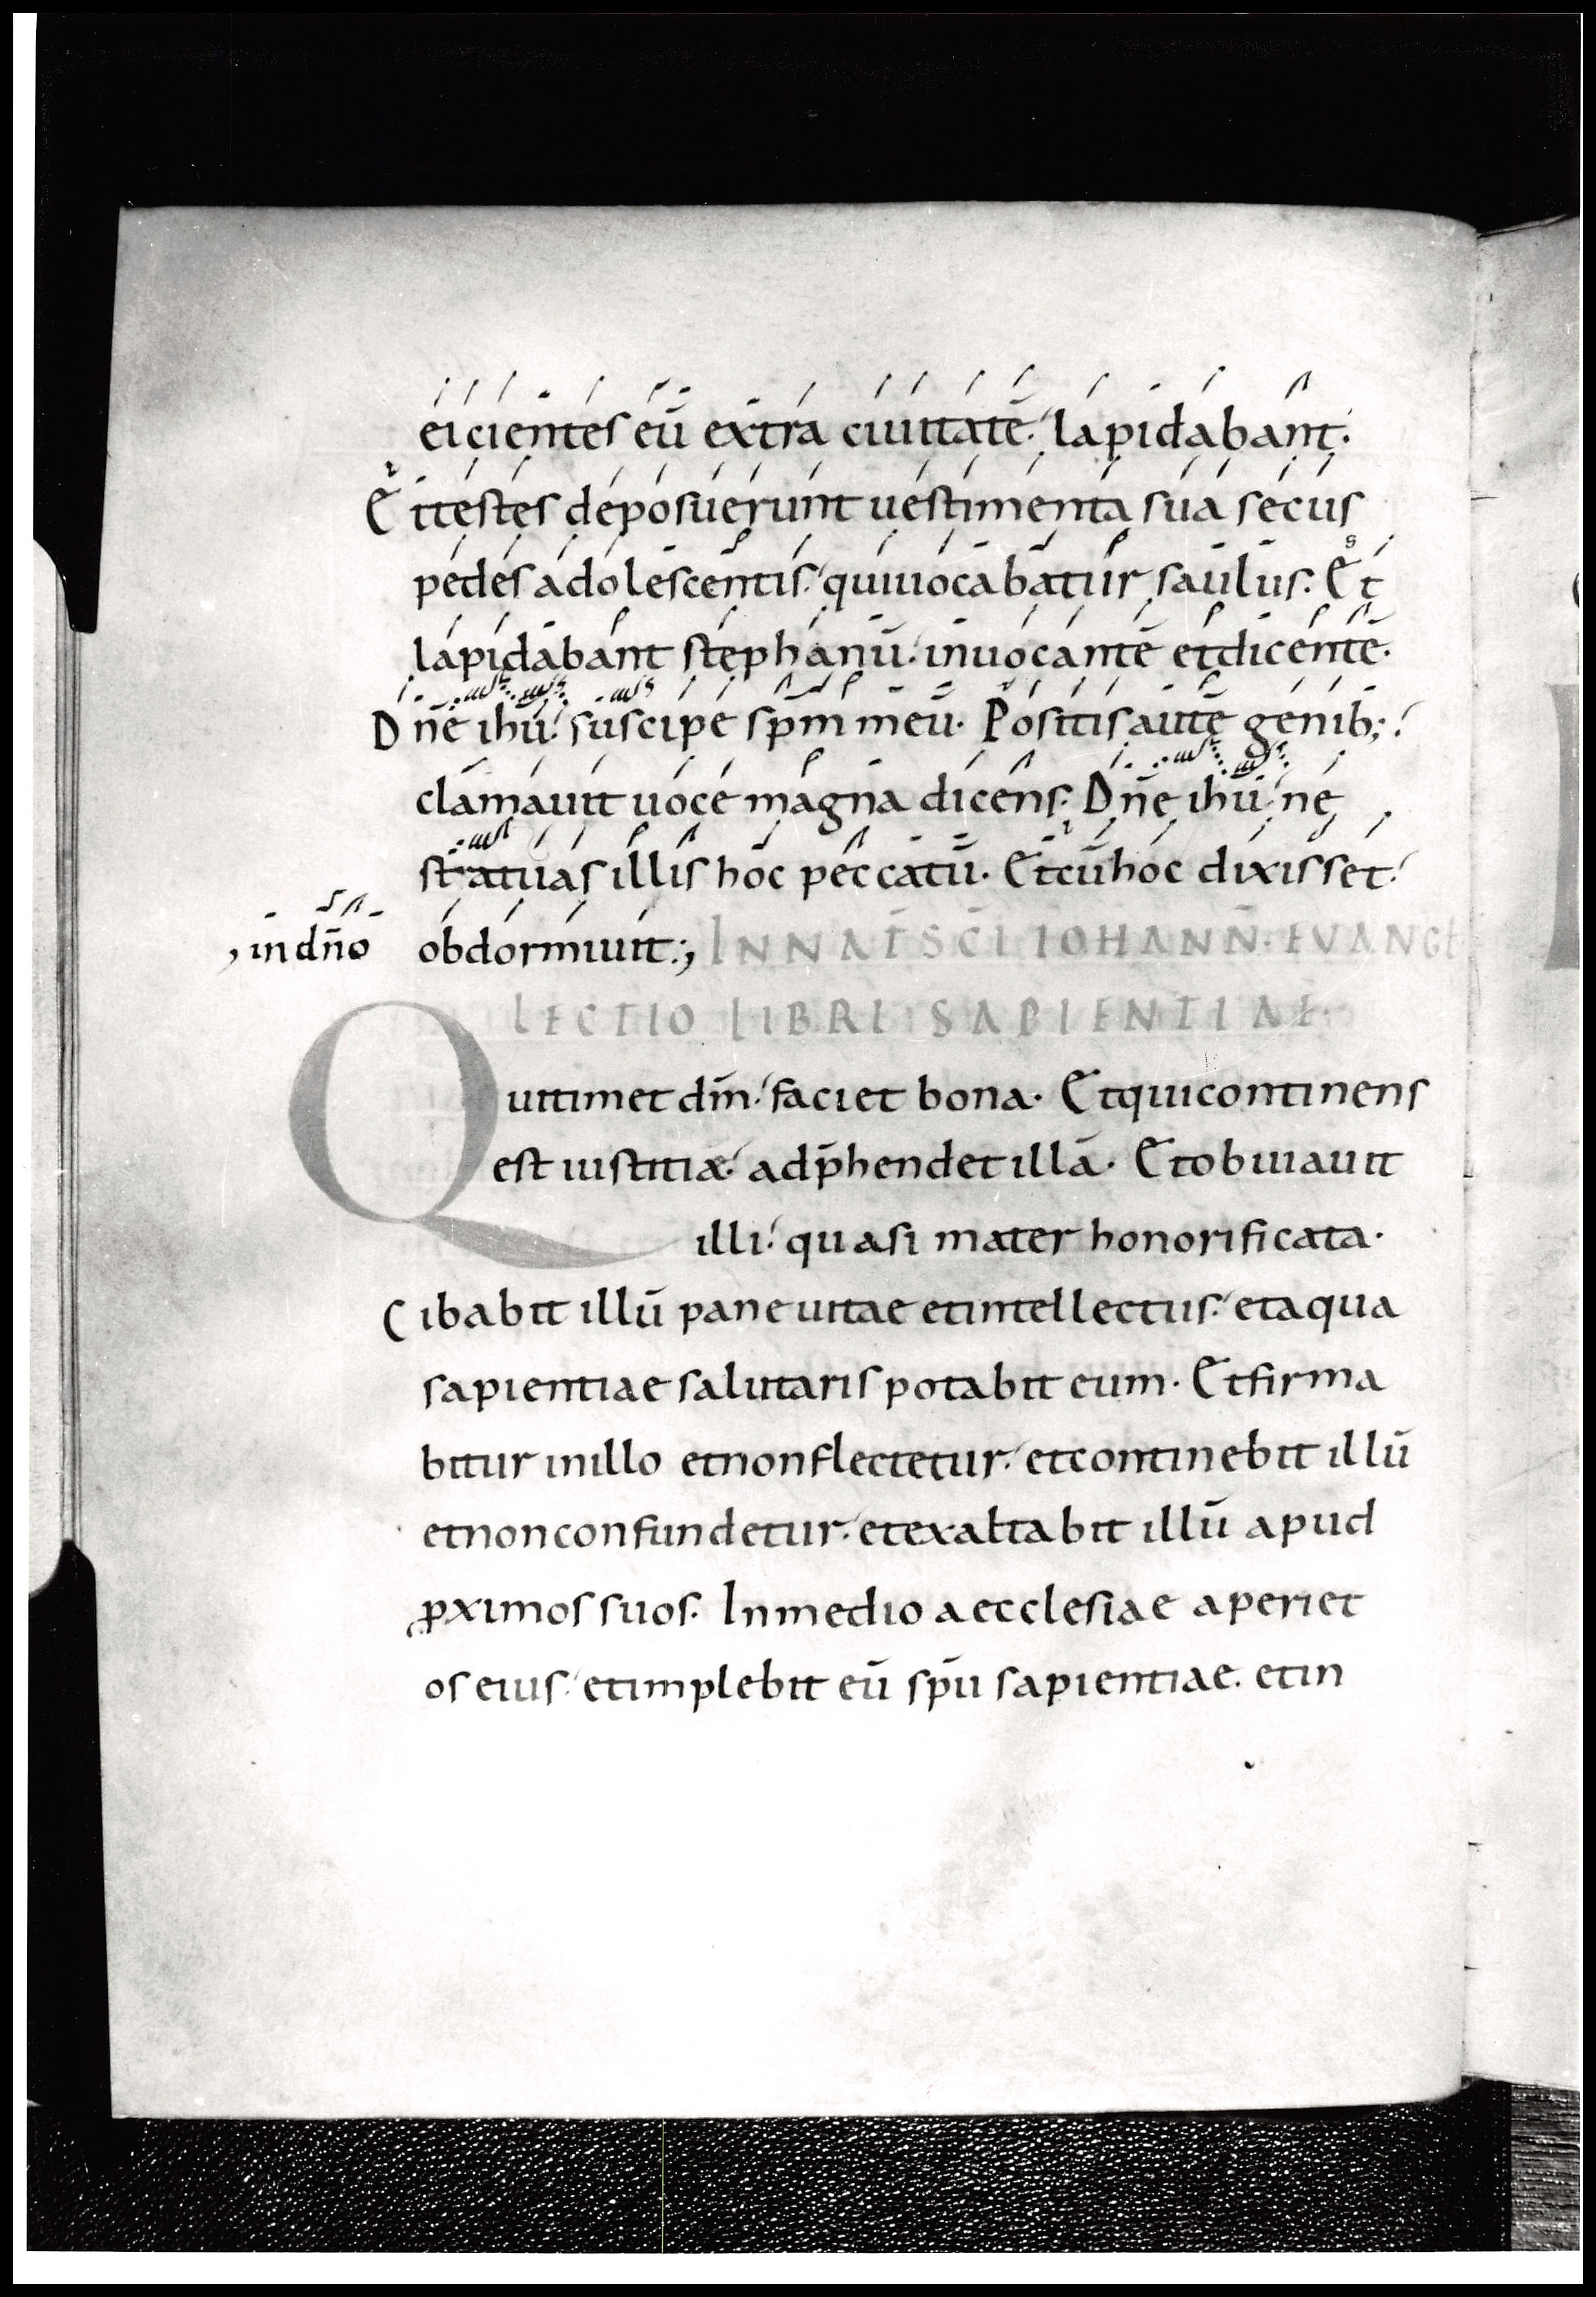 eicientes eū extra ciuitatē. lapidabant.
Et testes deposuerunt uestimenta sua secus
pedes adolescentis. qui uocabatur saulus. Et
lapidabant stephanū. inuocantē et dicentē.
Dn̄e ihū. suscipe sp̄m meū. Positis autē genib;
clamauit uoce magna dicens. Dn̄e ihū. ne
statuas illis hoc peccatū. Et cū hoc dixisset
, in dn̄o obdormiuit:, IN NAT SC̄I IOHANN̄. EVANGE
LECTIO LIBRI SAPIENTIAE.
Qui timet dm̄. faciet bona. Et qui continens
est iustitiæ. adp̄hendet illā. Et obuiauit
illi. quasi mater honorificata.
Cibabit illū pane uitae et intellectus. et aqua
sapientiae salutaris potabit eum. Et firma
bitur in illo et non flectetur. et continebit illū
et non confundetur. et exaltabit illū apud
ꝓximos suos. In medio aecclesiae aperiet
os eius. et implebit eū sp̄u sapientiae. et in